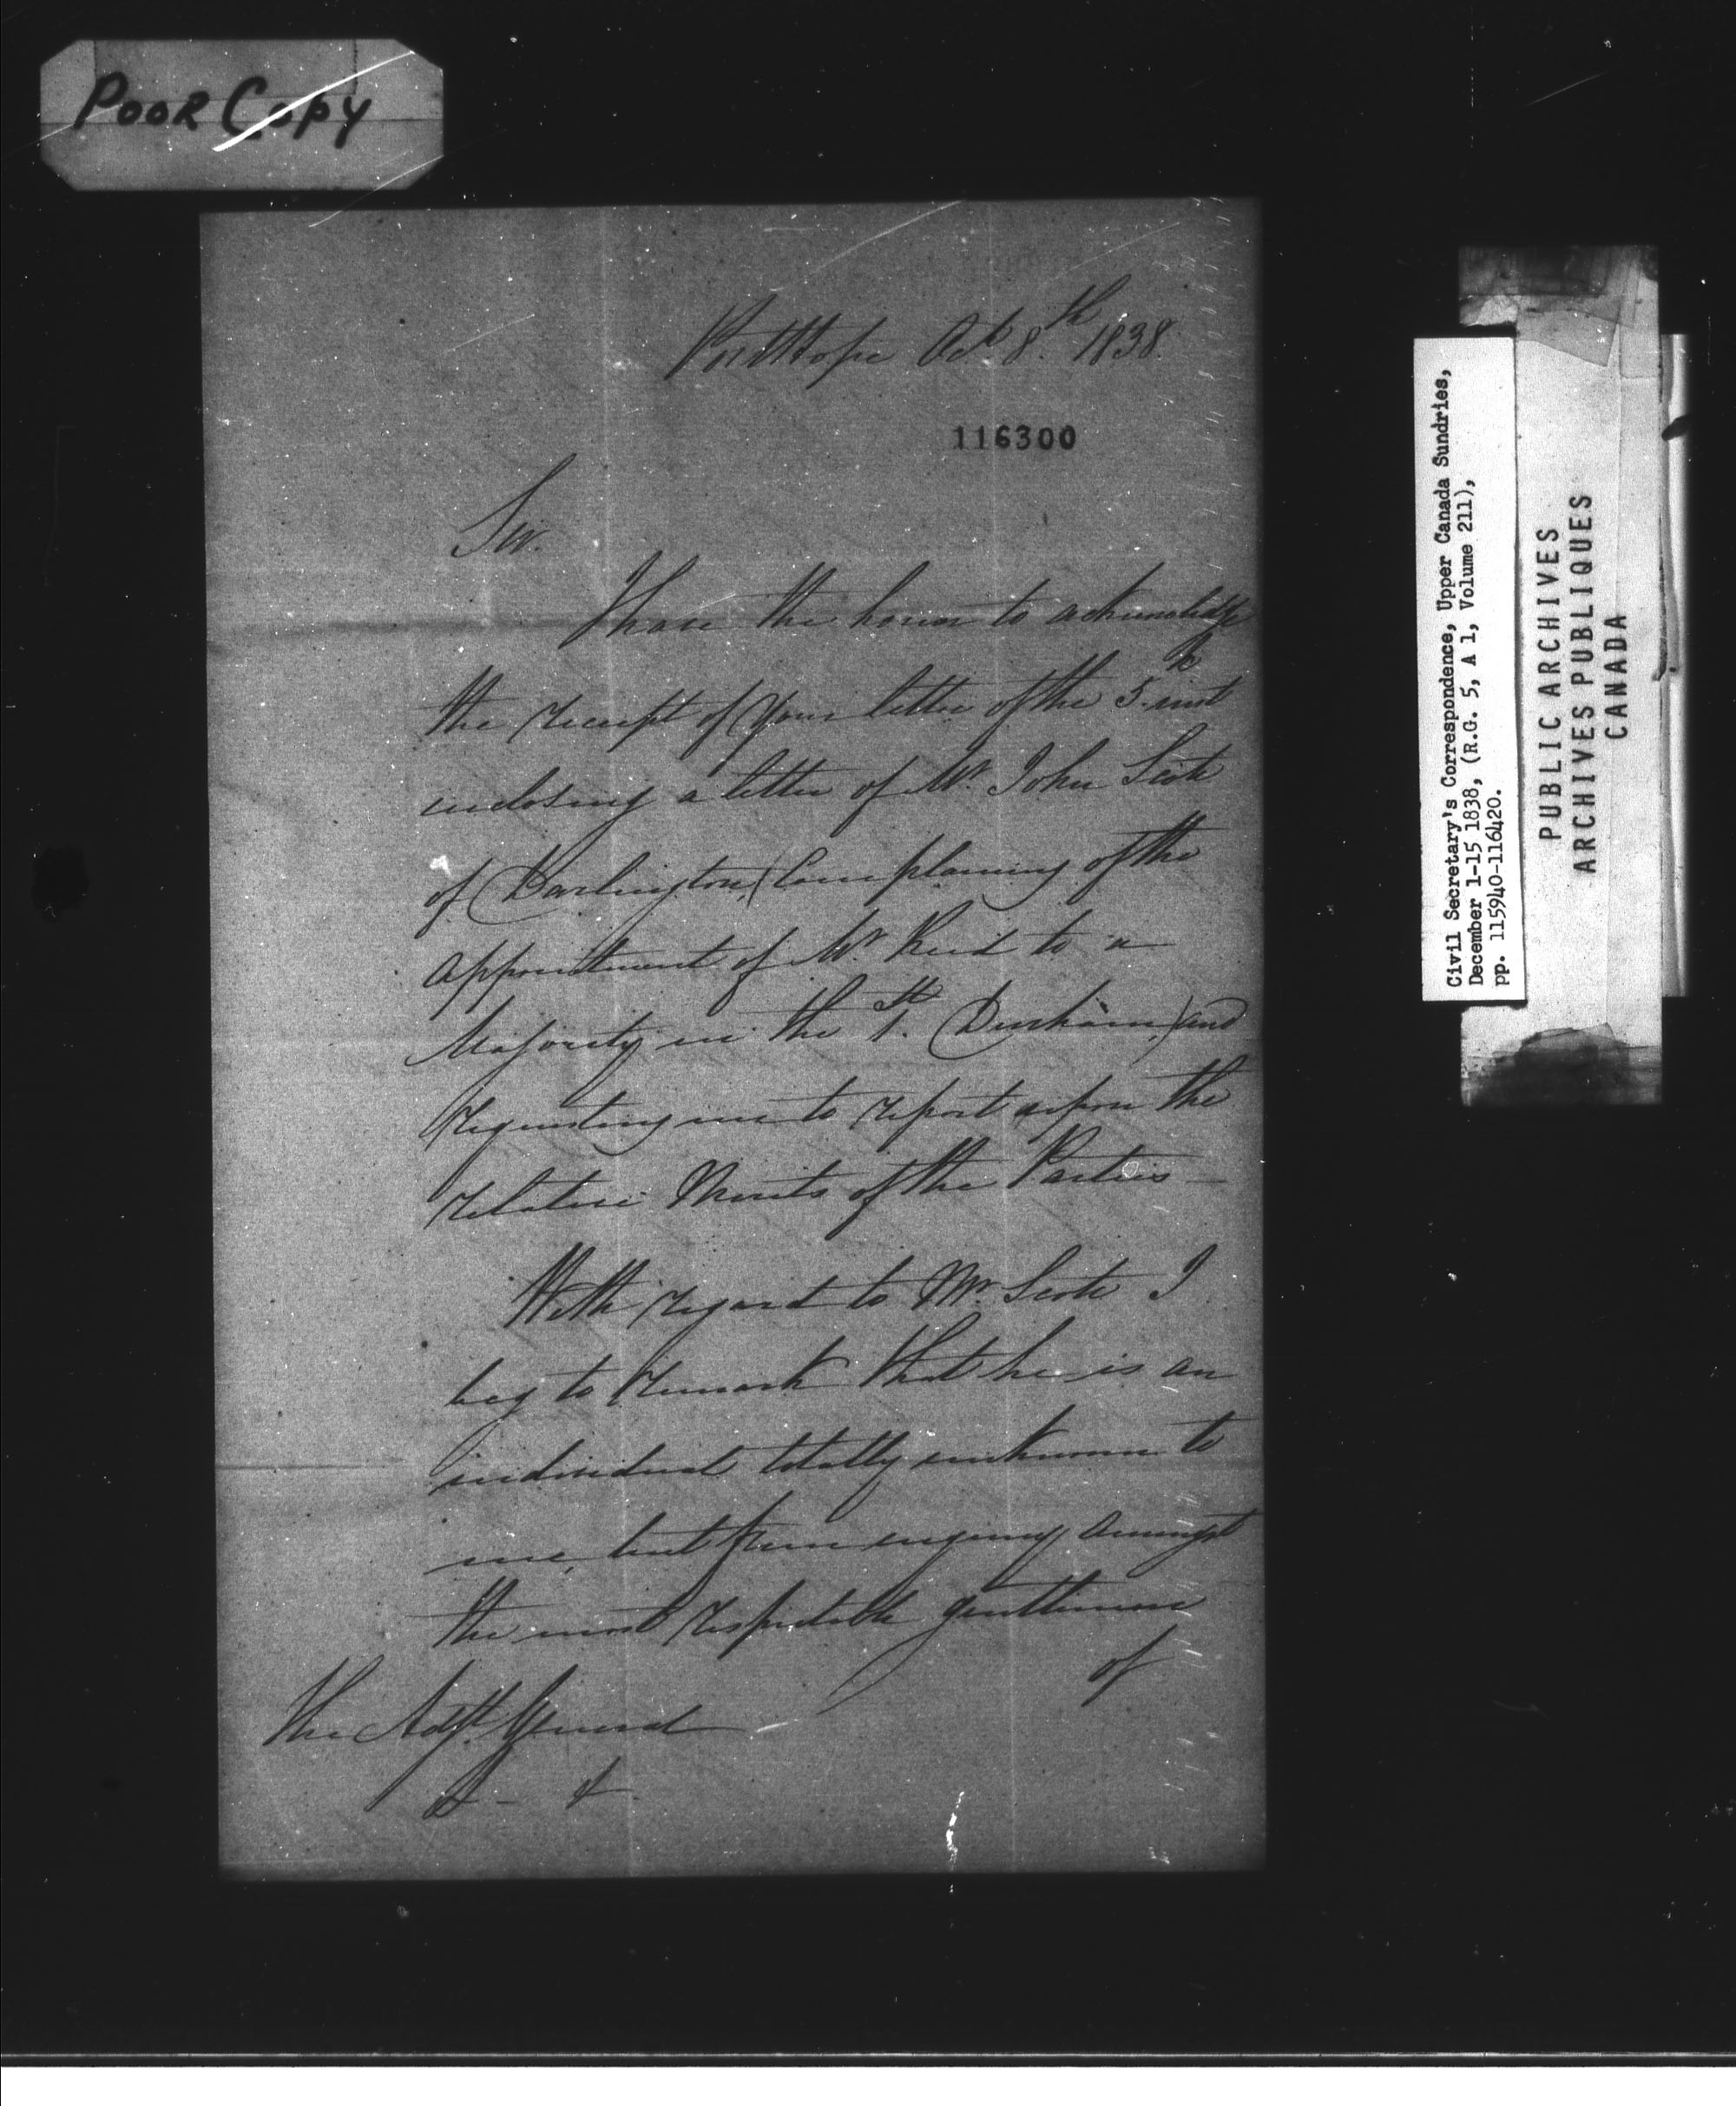 POOR COPY
Porthope Oct 8.th 1838.
116300
Sir.
I have the honor to acknowledge
the receipt of your letter of the 5.th inst
enclosing a letter of Mr. John Scott
of Darlington, (complaining of the
appointment of Mr. Reid to a
Majority in the 1.st Durham,) and
requesting me to report upon the
relative Merits of the Parties —
With regard to Mr. Scott I
beg to remark that he is an
individual totally unknown to
me, but from enquiry amongst
the most respectable gentlemen
of
The Adjt. General
& - &
Civil Secretary's Correspondence, Upper Canada Sundries,
December 1-15 1838, (R.G. 5, A 1, Volume 211),
pp. 115940-116420.
PUBLIC ARCHIVES
ARCHIVES PUBLIQUES
CANADA